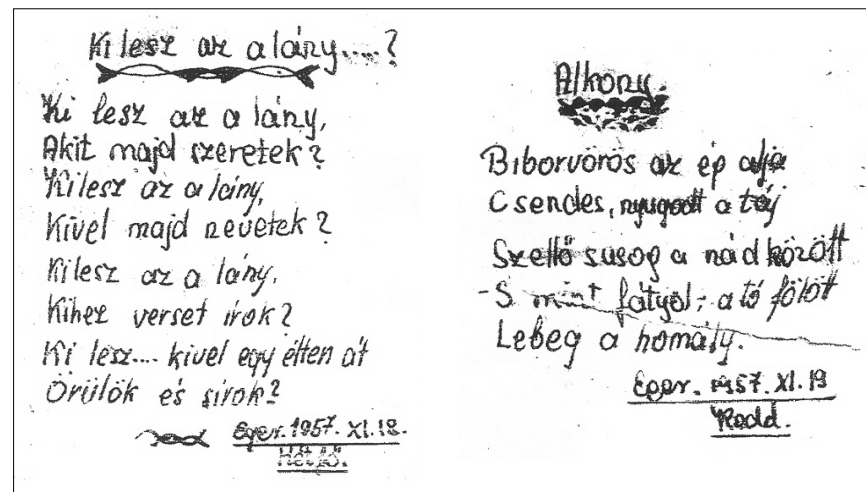 Ki lesz az a lány....?
Ki lesz az a lány,
Akit majd szeretek?
Ki lesz az a lány,
Kivel majd nevetek?
Ki lesz az a lány,
Kihez verset írok?
Ki lesz.... kivel egy élten át
Örülök és sírok?
Eger. 1957. XI. 18.
Hétfő.
Alkony.
Biborvörös az ép alja
Csendes, nyugodt a táj
Szellő susog a nád között
S mint fátyol - a tó fölött
Lebeg a homály.
Eger. 1957. XI. 19
Kedd.